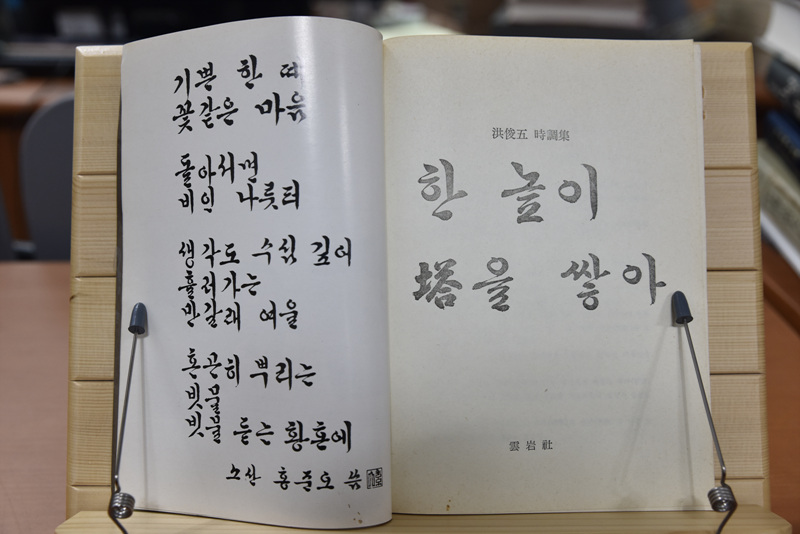 기쁜 한 때
꽃같은 마음
돌아서면
비인 나룻터
생각도 수심 깊어
흘러가는
반갈래 여울
흔곤히 뿌리는
빗물
빗물 듣는 황혼에
노산 홍준오
洪俊五 時調集
한 높이
塔을 쌓아
雲岩社